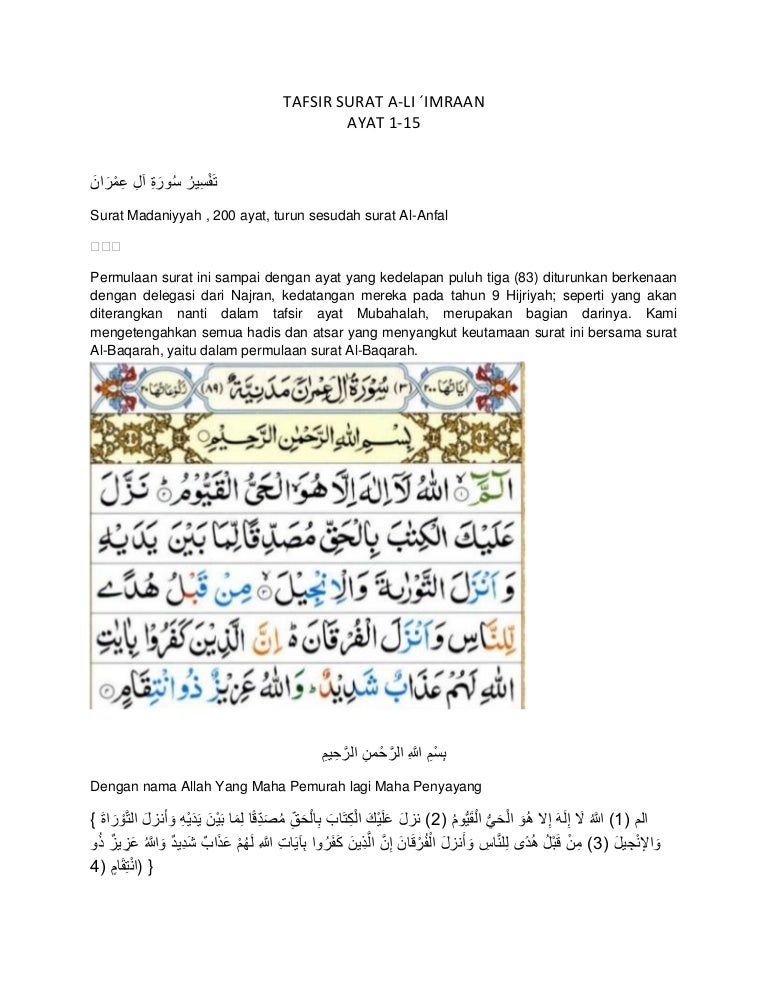 TAFSIR SURAT A-LI ´IMRAAN
AYAT 1-15
تَفْسِيرُ سُورَةِ آلِ عِمْرَانَ
Surat Madaniyyah , 200 ayat, turun sesudah surat Al-Anfal
Permulaan surat ini sampai dengan ayat yang kedelapan puluh tiga (83) diturunkan berkenaan
dengan delegasi dari Najran, kedatangan mereka pada tahun 9 Hijriyah; seperti yang akan
diterangkan nanti dalam tafsir ayat Mubahalah, merupakan bagian darinya. Kami
mengetengahkan semua hadis dan atsar yang menyangkut keutamaan surat ini bersama surat
Al-Baqarah, yaitu dalam permulaan surat Al-Baqarah.
اٰيَاتُهَا ٢٠٠ (٣) سُوْرَةُ اٰلِ عِمْرٰنَ مَدَنِيَّةٌ (٨٩) رُكُوْعَاتُهَا ٢٠
بِسْمِ اللهِ الرَّحْمٰنِ الرَّحِيْمِ
الٓمّٓ ۝١ اللهُ لَآ اِلٰهَ اِلَّا هُوَ الْحَىُّ الْقَيُّوْمُ ۝ نَزَّلَ
عَلَيْكَ الْكِتٰبَ بِالْحَقِّ مُصَدِّقًا لِّمَا بَيْنَ يَدَيْهِ
وَاَنْزَلَ التَّوْرٰىةَ وَالْاِنْجِيْلَ ۝ مِنْ قَبْلُ هُدًى
لِّلنَّاسِ وَاَنْزَلَ الْفُرْقَانَ ۗ اِنَّ الَّذِيْنَ كَفَرُوْا بِاٰيٰتِ
اللهِ لَهُمْ عَذَابٌ شَدِيْدٌ ۗ وَاللهُ عَزِيْزٌ ذُو انْتِقَامٍ ۝
بِسْمِ اللَّهِ الرَّحْمنِ الرَّحِيمِ
Dengan nama Allah Yang Maha Pemurah lagi Maha Penyayang
{ الم (1) اللَّهُ لَا إِلَهَ إِلا هُوَ الْحَيُّ الْقَيُّومُ (2) نزلَ عَلَيْكَ الْكِتَابَ بِالْحَقِّ مُصَدِّقًا لِمَا بَيْنَ يَدَيْهِ وَأَنزلَ التَّوْرَاةَ
وَالإنْجِيلَ (3) مِنْ قَبْلُ هُدًى لِلنَّاسِ وَأَنزلَ الْفُرْقَانَ إِنَّ الَّذِينَ كَفَرُوا بِآيَاتِ اللَّهِ لَهُمْ عَذَابٌ شَدِيدٌ وَاللَّهُ عَزِيزٌ ذُو
انْتِقَامٍ (4) }